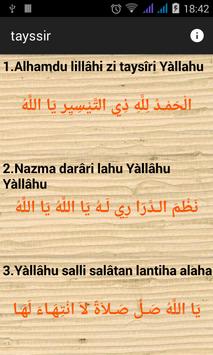 18:42
tayssir
1.Alhamdu lillâhi zi taysîri Yàllahu
الْحَمْدُ لِلَّهِ ذِي التَّيْسِيرِ يَا اللَّهُ
2.Nazma darâri lahu Yàllâhu
Yàllâhu
نَظْمَ الـدَّرَا رِي لَـهُ يَا اللَّهُ يَا اللَّهُ
3.Yàllâhu salli salâtan lantiha alaha
يَا اللَّهُ صَـلِّ صَـلاَةً لاَ انْتِهَـاءَ لَهَـا